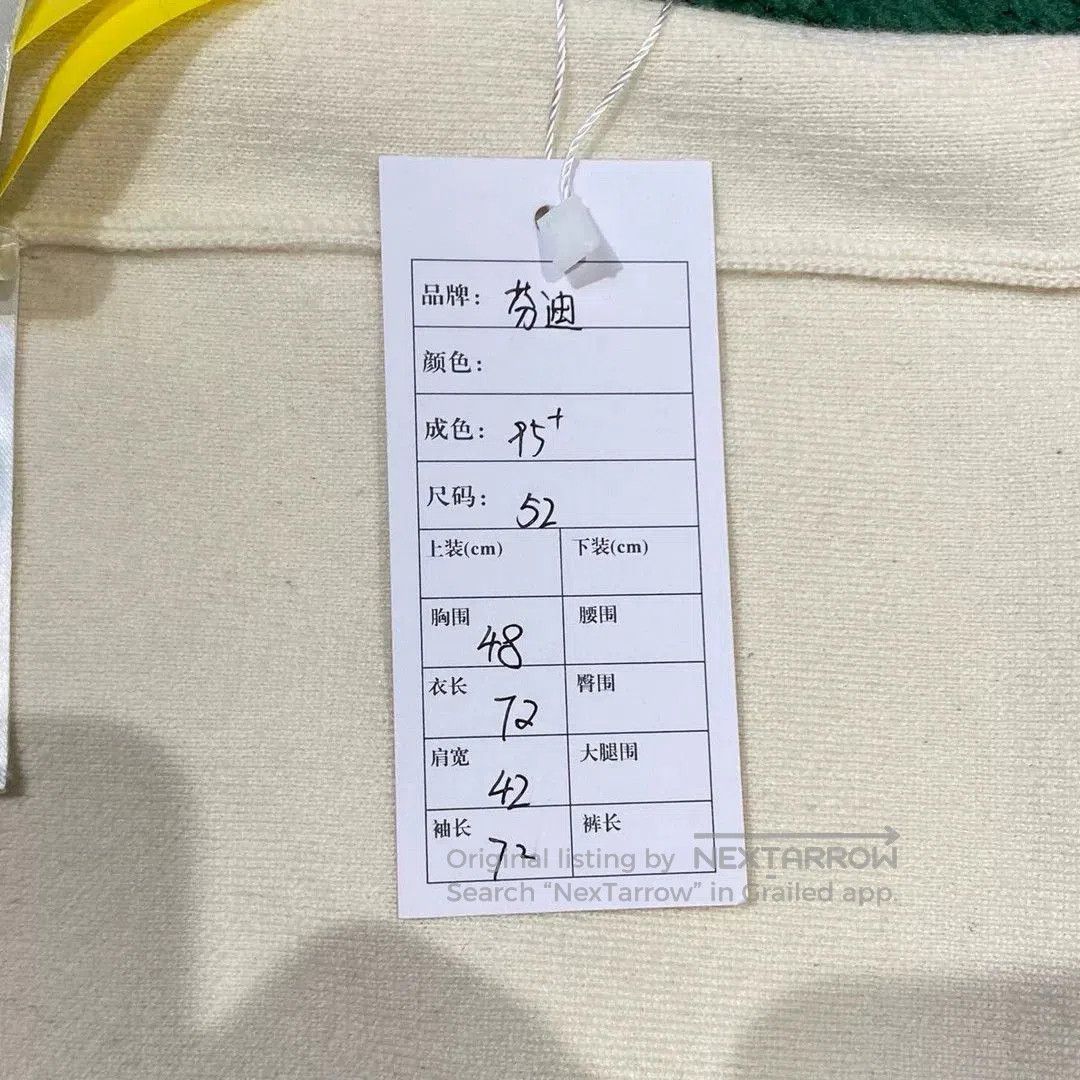 品牌: 芬迪
颜色:
成色: 95+
尺码: 52
上装(cm) 下装(cm)
胸围 48 腰围
衣长 72 臀围
肩宽 42 大腿围
袖长 72 裤长
Original listing by NEXTARROW
Search “NexTarrow” in Grailed app.